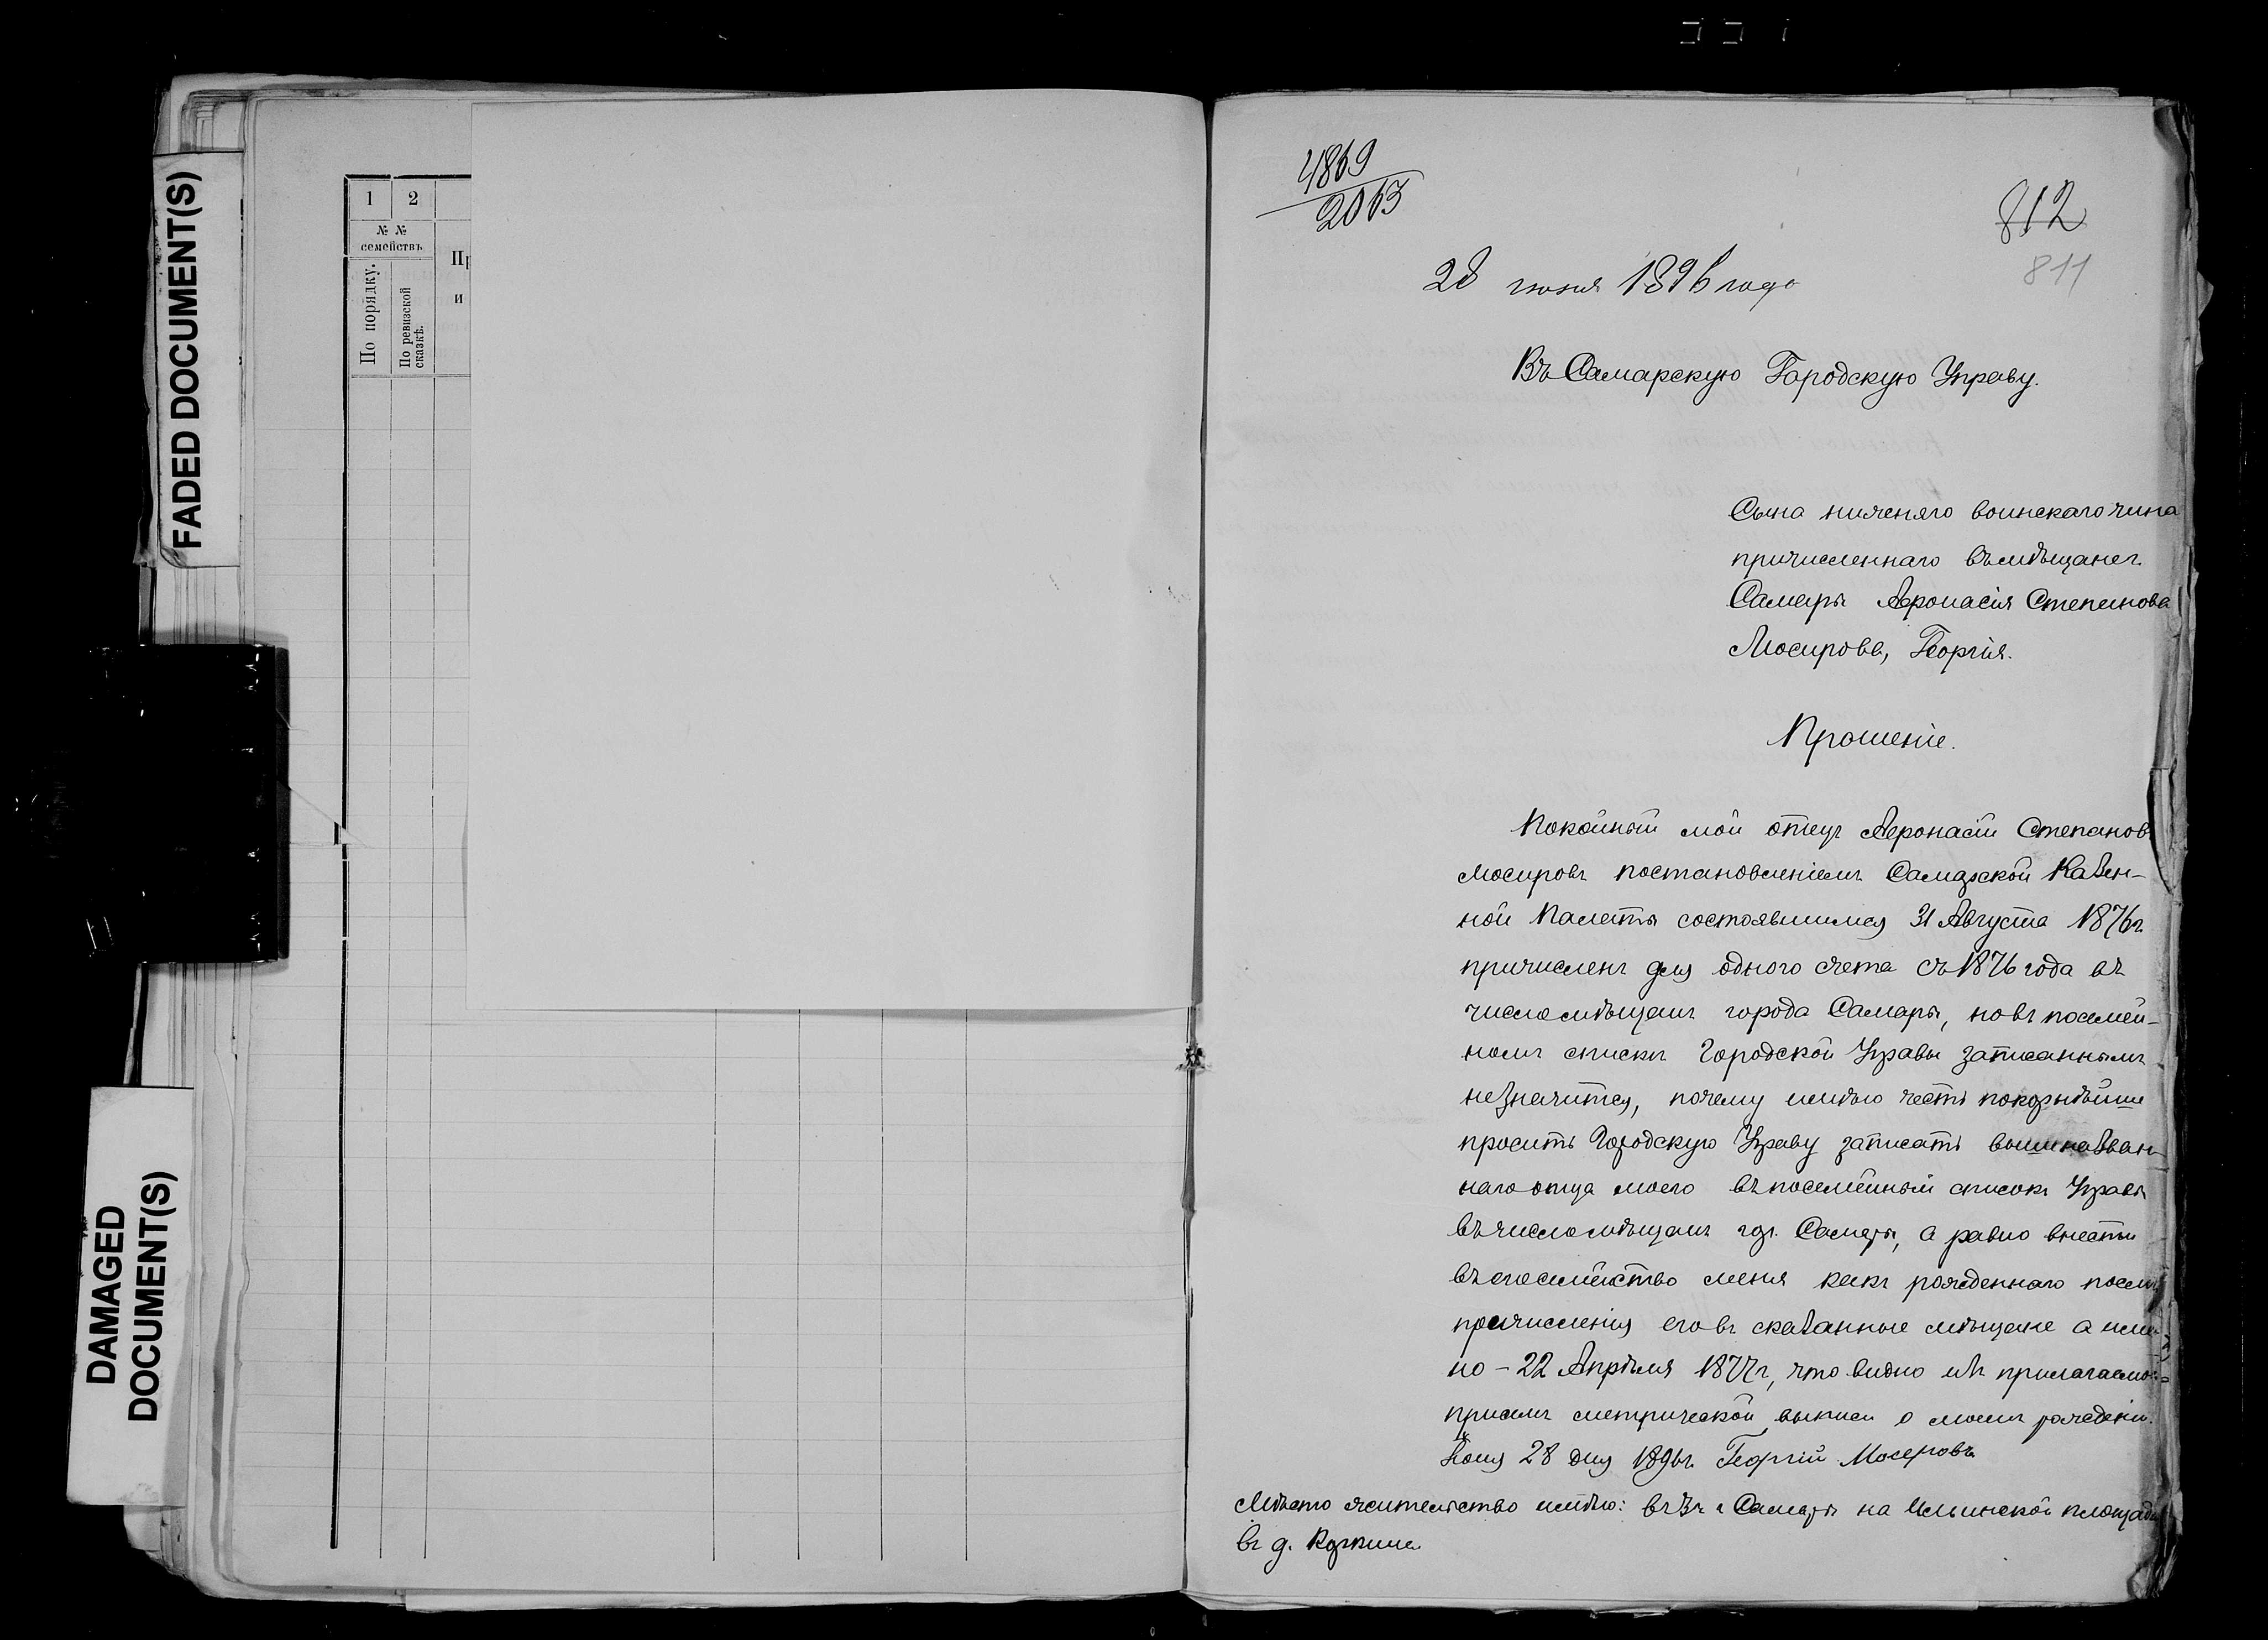 FADED DOCUMENT(S)
DAMAGED
DOCUMENT(S)
1 2
№ №
семействъ
По порядку.
По ревизской
сказкѣ.
Пр
и
4869
2063
812
811
28 июня 1896 года
Въ Самарскую Городскую Управу.
Сына нижняго воинскаго чина
причисленнаго въ мѣщане г.
Самары Афонасія Степанова
Мосирова, Георгія.
Прошеніе.
Покойный мой отецъ Афонасій Степановъ
Мосировъ постановленіемъ Самарской Казен-
ной Палаты состоявшимся 31 Августа 1876 г.
причисленъ для одного счета съ 1876 года въ
число мѣщанъ города Самары, но въ посемей-
номъ списке Городской Управы записаннымъ
не значится, почему имѣю честь покорнѣйше
просить Городскую Управу записать вышеназван-
наго отца моего въ посемейный списокъ Управы
въ число мѣщанъ гор. Самары, а равно внести
въ его семейство меня какъ рожденнаго послѣ
причисленія его въ сказанные мѣщане а имен-
но – 22 Апрѣля 1877 г, что видно изъ прилагаемой
при семъ метрической выписи о моемъ рожденіи.
Іюня 28 дня 1896 г. Георгій Мосировъ
Мѣсто жительство имѣю: въ г. Самары на Ильинской площади
въ д.